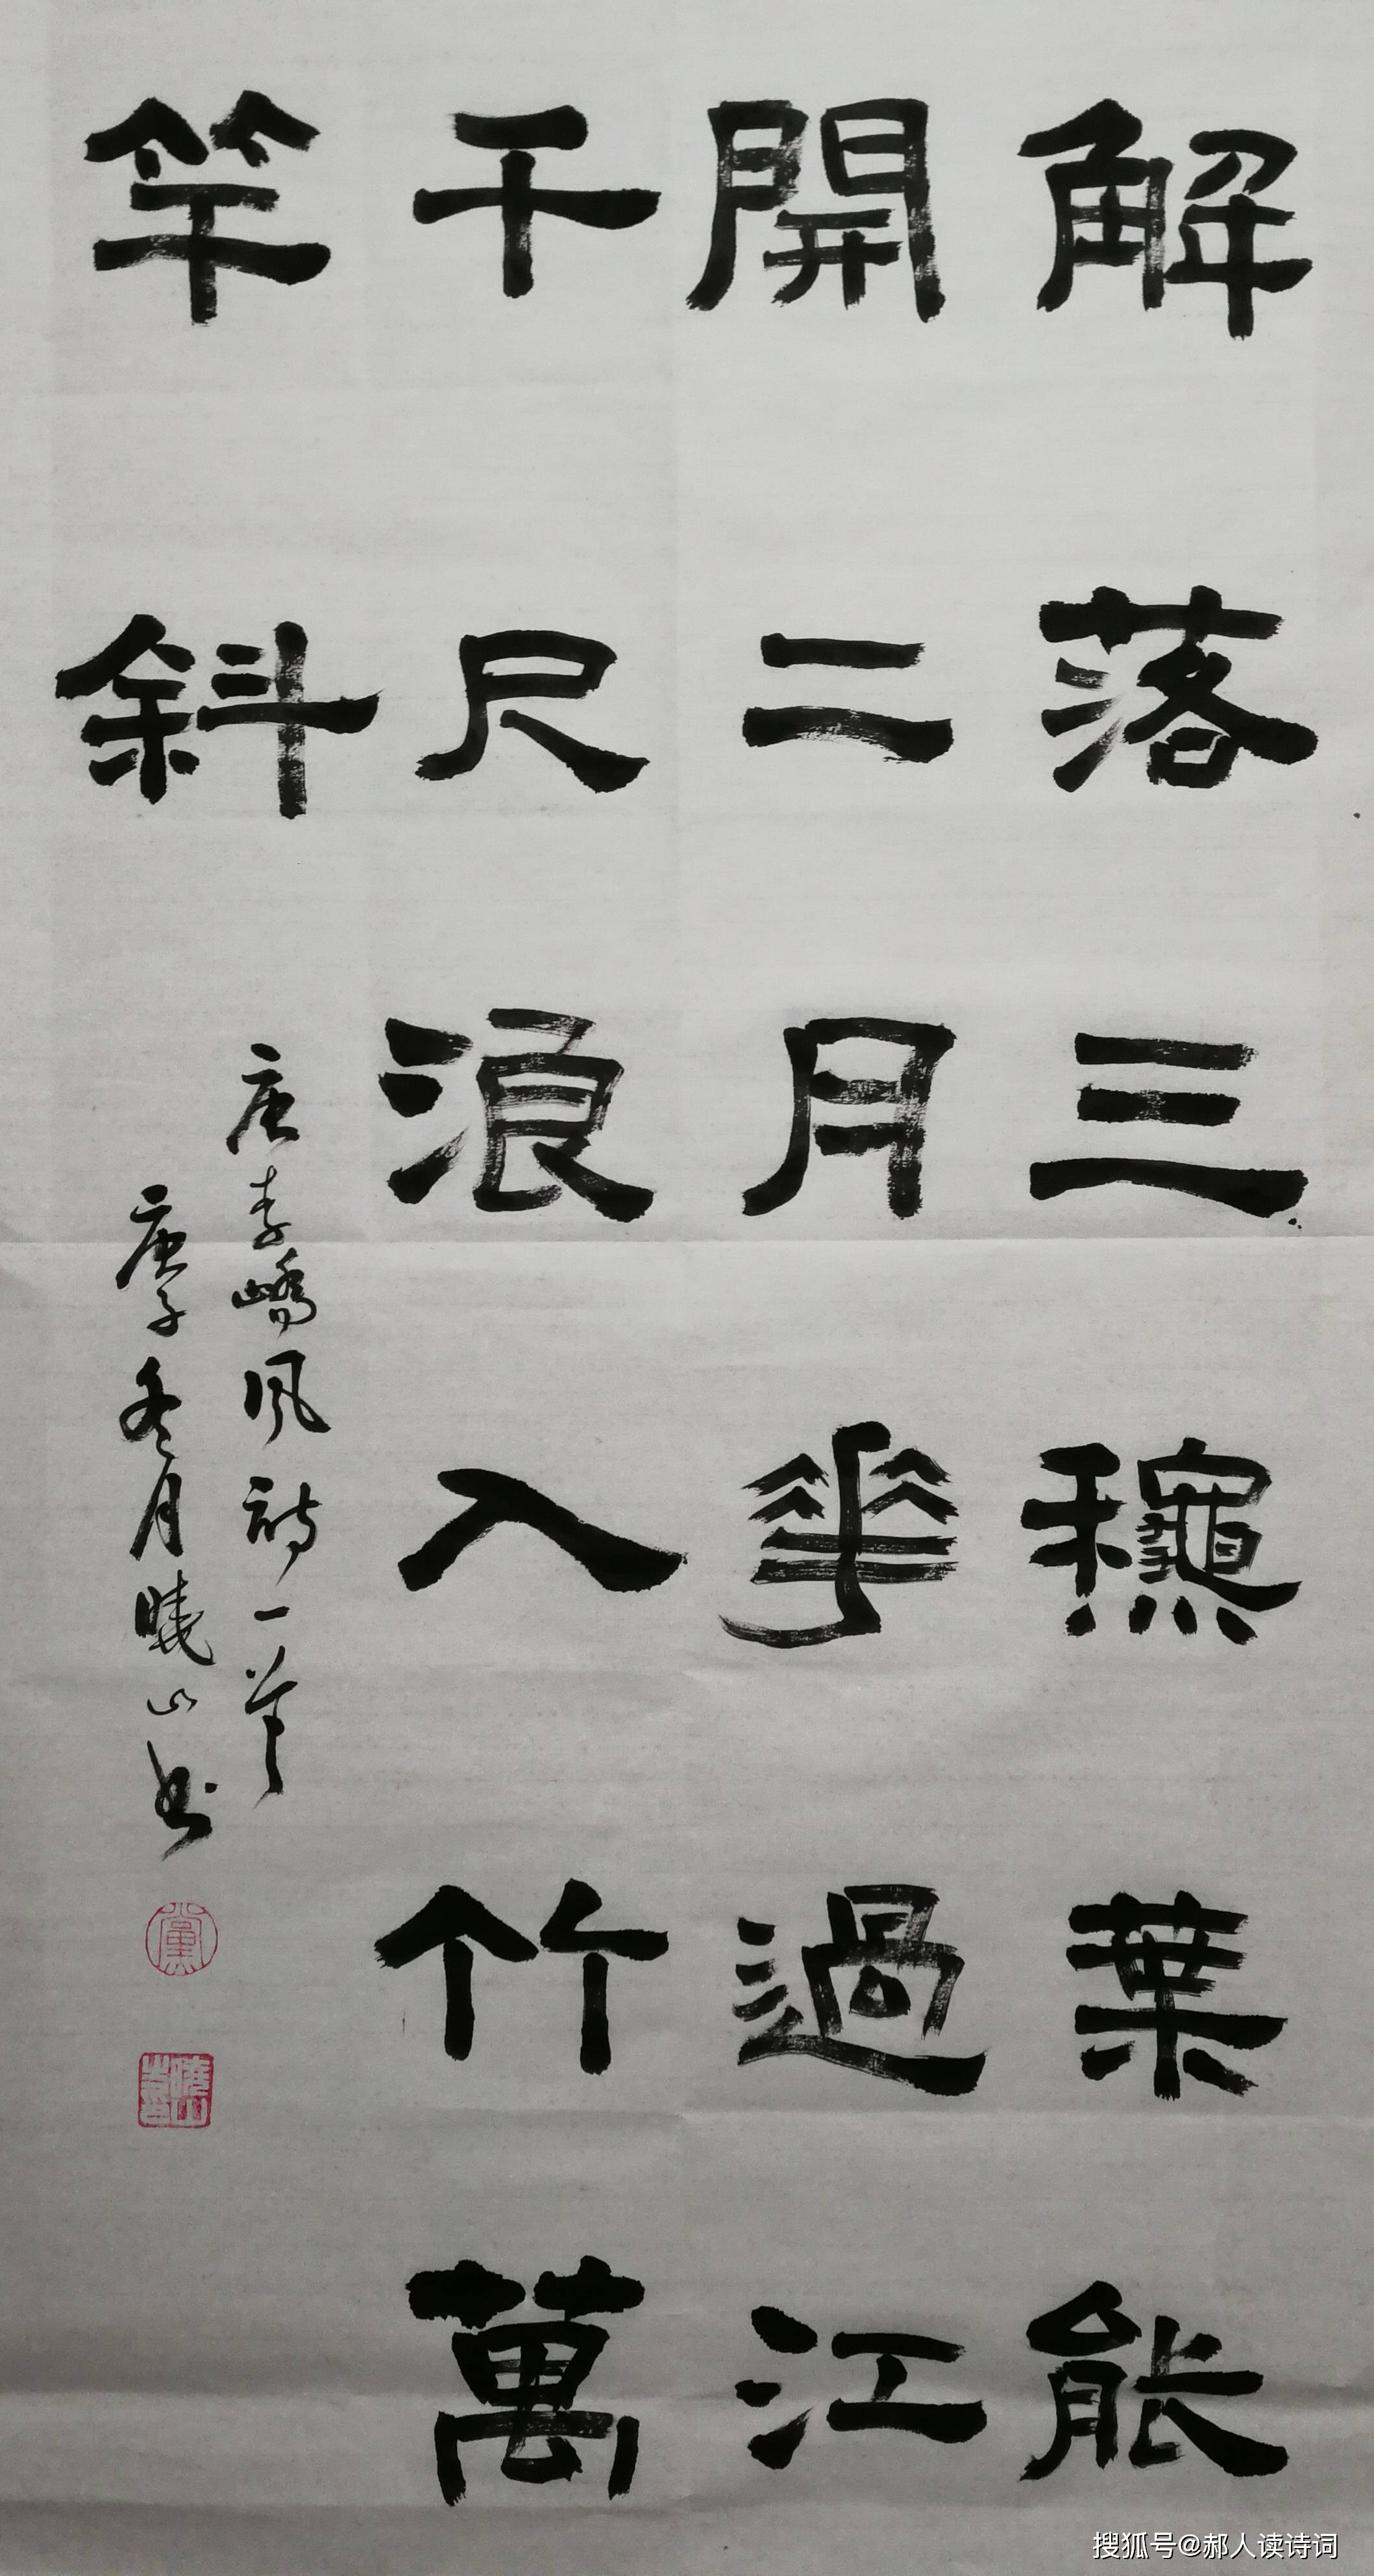 解落三龝葉能
開二月華過江
千尺浪入竹萬
竿斜
唐李嶠風詩一首
庚子冬月曉山書
黨
搜狐号@郝人读诗词